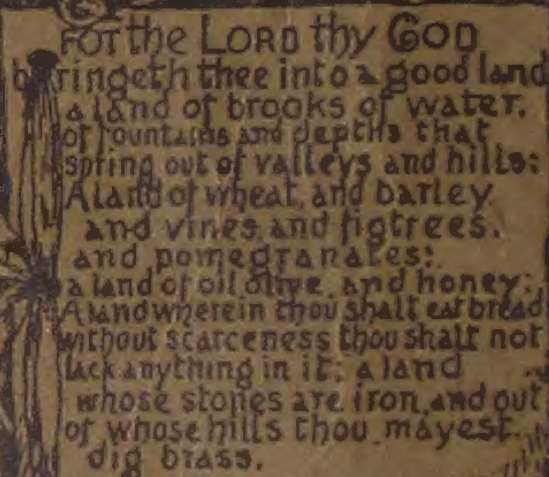 FOR the LORD thy GOD
bringeth thee into a good land
a land of brooks of water,
of fountains and depths that
spring out of valleys and hills:
A land of wheat, and barley,
and vines, and figtrees,
and pomegranates:
a land of oil olive, and honey;
A land wherein thou shalt eat bread
without scarceness thou shalt not
lack anything in it; a land
whose stones are iron, and out
of whose hills thou mayest
dig brass.